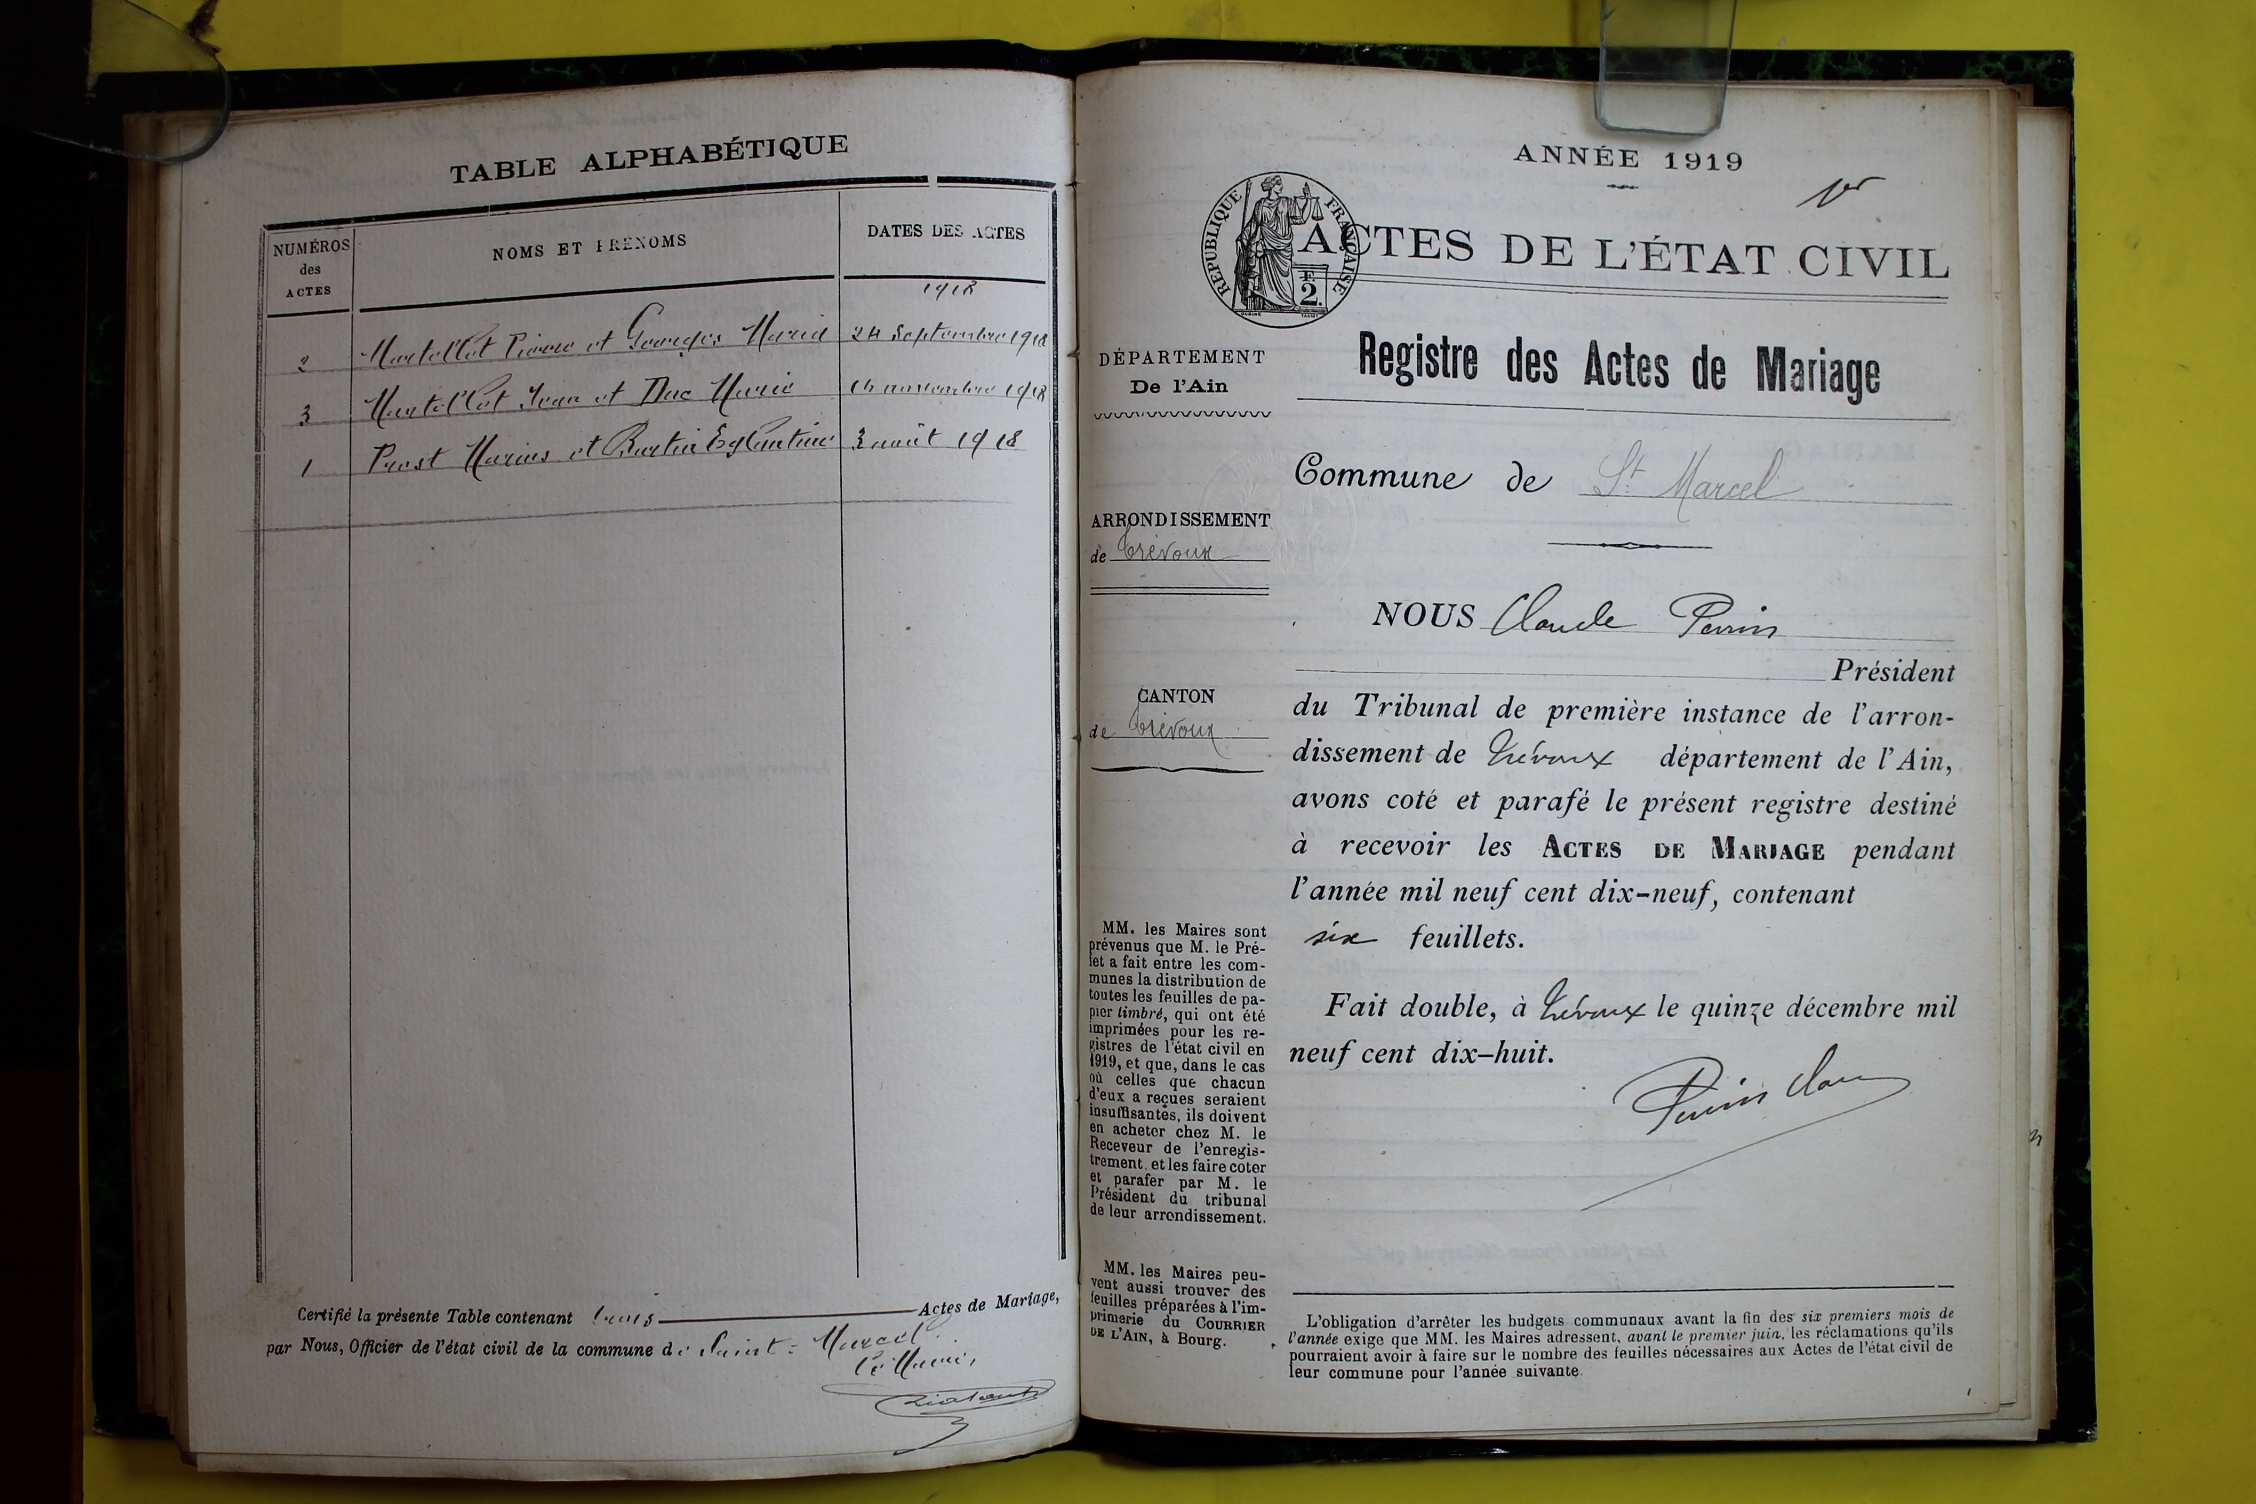 TABLE ALPHABÉTIQUE
NUMÉROS
des
ACTES
NOMS ET PRÉNOMS
DATES DES ACTES
1918
2 Martellot Pierre et Georges Maria 24 Septembre 1918
3 Martellot Jean et Duc Marie novembre 1918
1 Prost Marius et Bertin Eglantine 3 août 1918
Certifié la présente Table contenant trois Actes de Mariage,
par Nous, Officier de l'état civil de la commune de Saint-Marcel
Le Maire,
ANNÉE 1919
1er
RÉPUBLIQUE FRANÇAISE
2
ACTES DE L'ÉTAT CIVIL
DÉPARTEMENT
De l'Ain
Registre des Actes de Mariage
Commune de St Marcel
ARRONDISSEMENT
de Trévoux
NOUS Claude Perrin
Président
CANTON
de Trévoux
du Tribunal de première instance de l'arron-
dissement de Trévoux département de l'Ain,
avons coté et parafé le présent registre destiné
à recevoir les ACTES DE MARIAGE pendant
l'année mil neuf cent dix-neuf, contenant
six feuillets.
Fait double, à Trévoux le quinze décembre mil
neuf cent dix-huit.
Perrin Claude
MM. les Maires sont
prévenus que M. le Pré-
fet a fait entre les com-
munes la distribution de
toutes les feuilles de pa-
pier timbré, qui ont été
imprimées pour les re-
gistres de l'état civil en
1919, et que, dans le cas
où celles que chacun
d'eux a reçues seraient
insuffisantes, ils doivent
en acheter chez M. le
Receveur de l'enregis-
trement, et les faire coter
et parafer par M. le
Président du tribunal
de leur arrondissement.
MM. les Maires peu-
vent aussi trouver des
feuilles préparées à l'im-
primerie du COURRIER
DE L'AIN, à Bourg.
L'obligation d'arrêter les budgets communaux avant la fin des six premiers mois de
l'année exige que MM. les Maires adressent, avant le premier juin, les réclamations qu'ils
pourraient avoir à faire sur le nombre des feuilles nécessaires aux Actes de l'état civil de
leur commune pour l'année suivante.